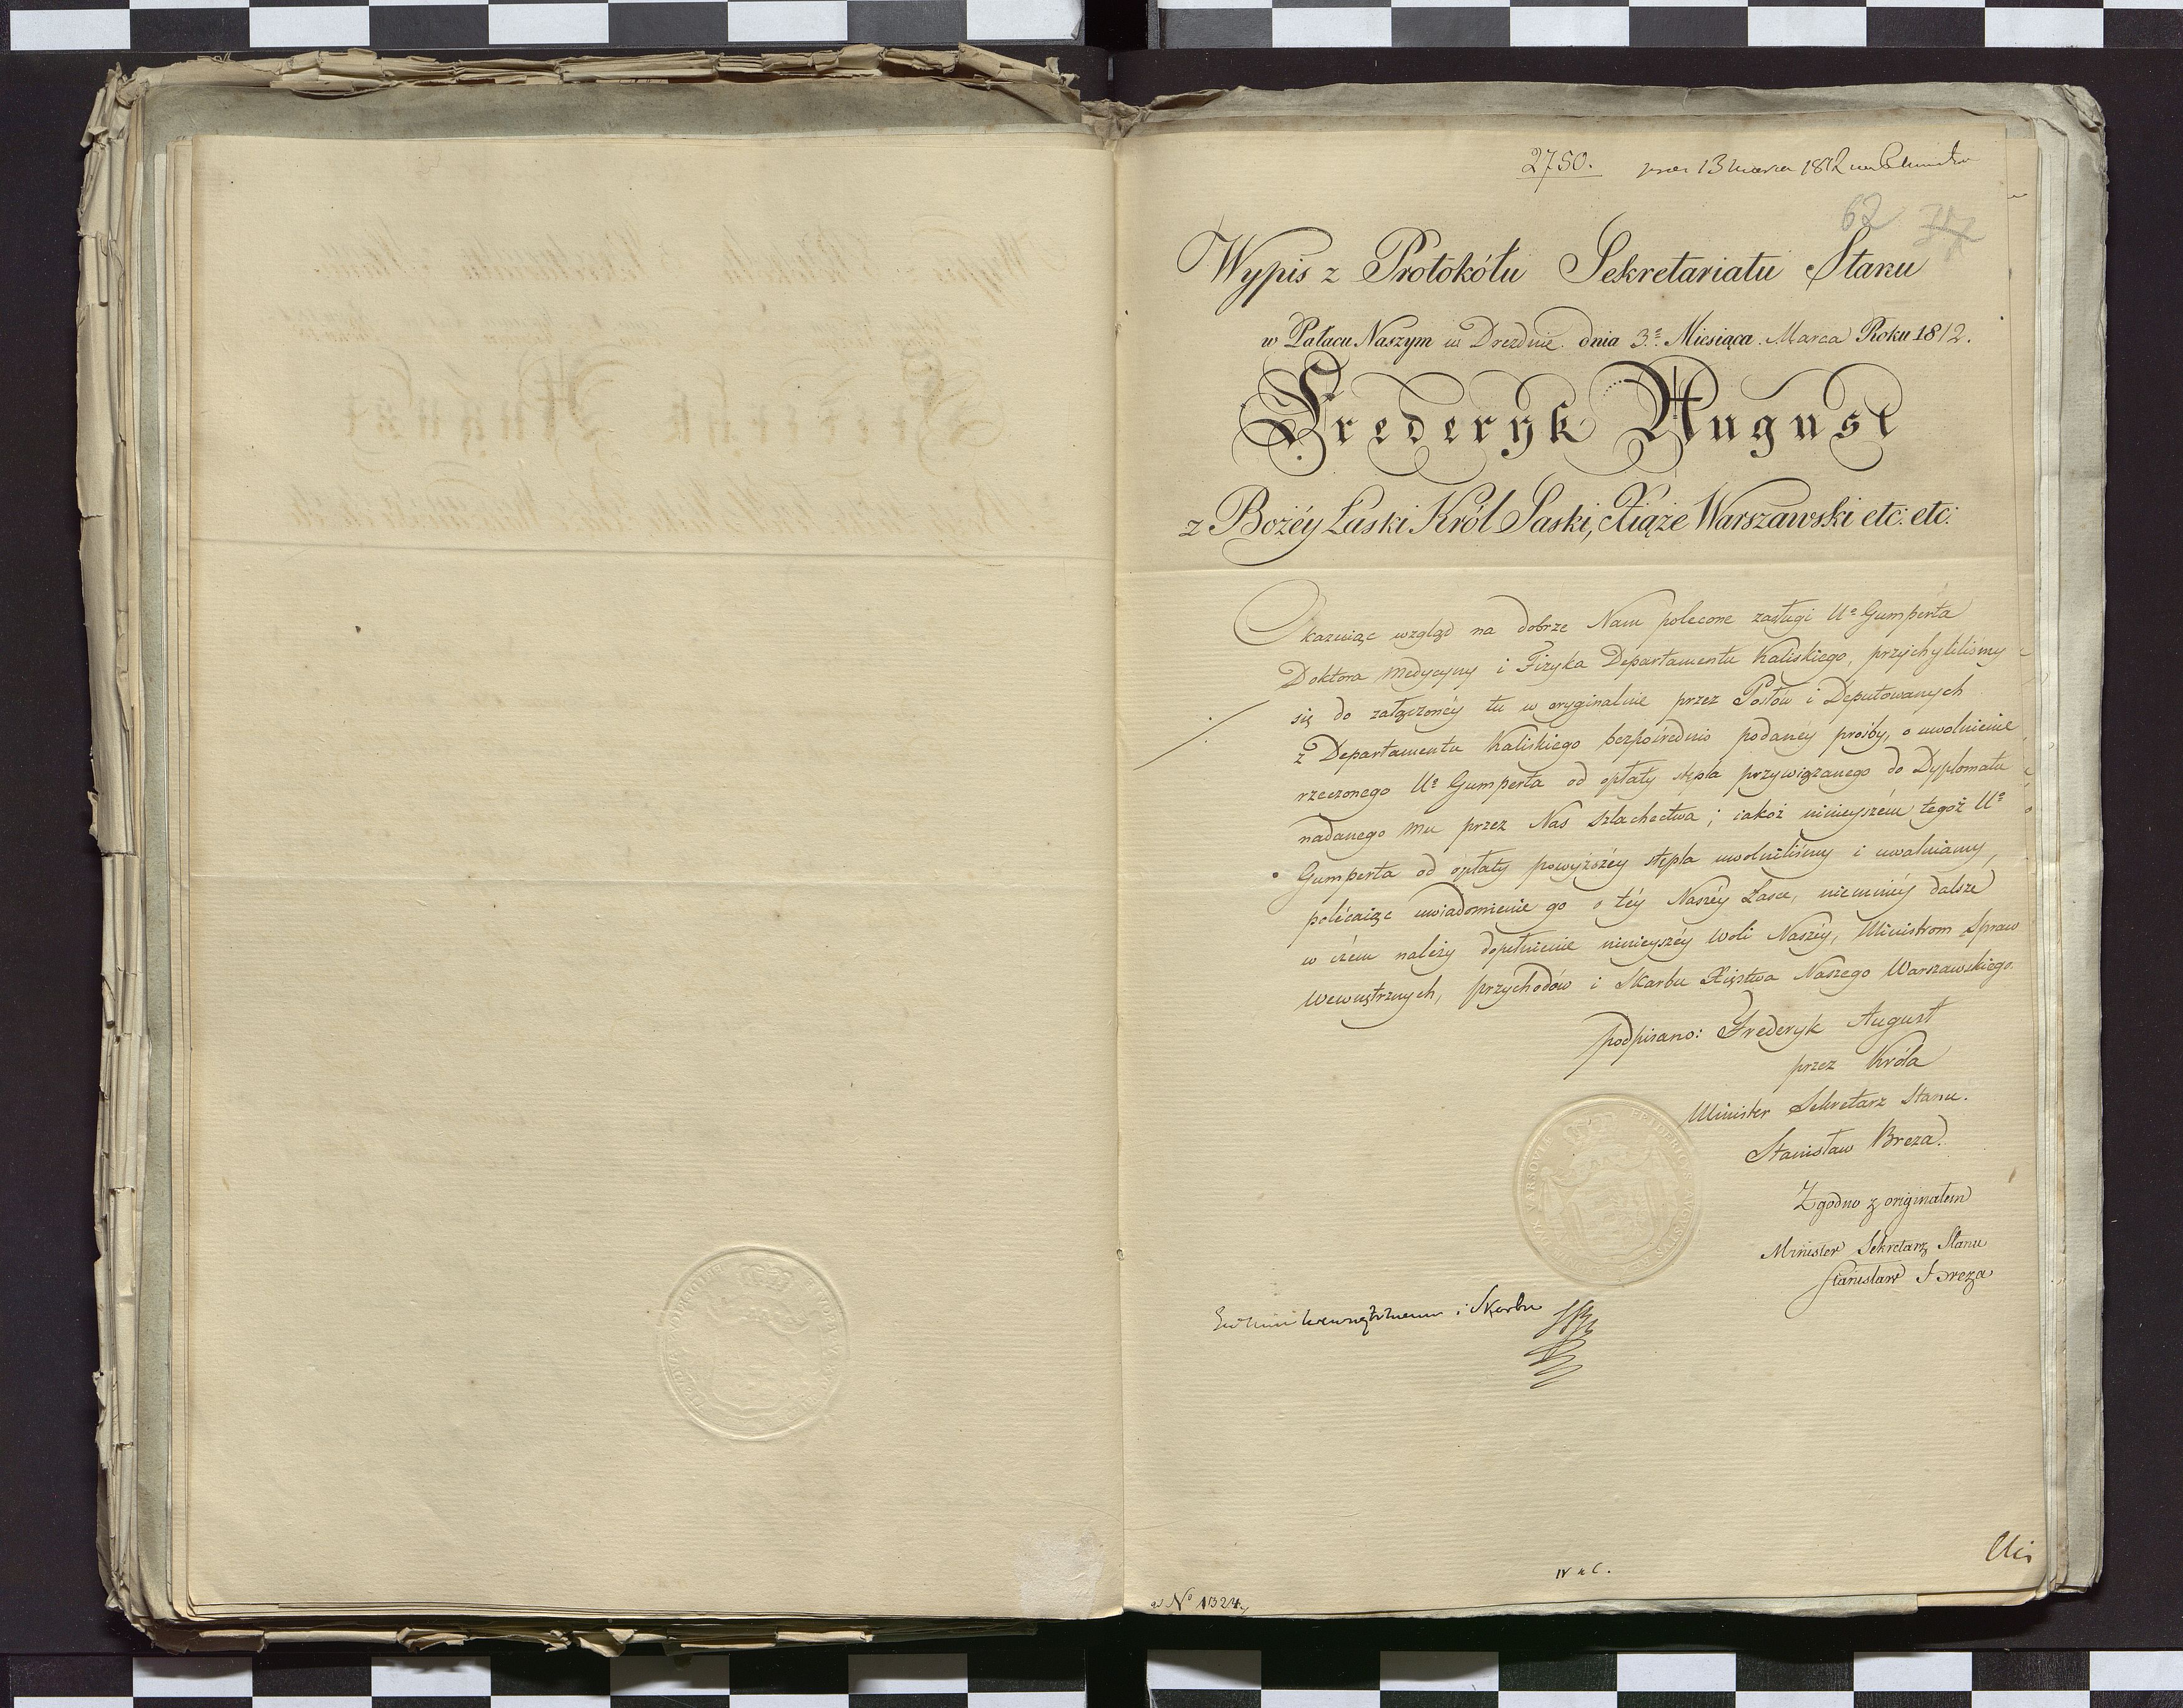 2750. 13 marca 1812
62
Wypis z Protokółu Sekretariatu Stanu
w Pałacu Naszym w Dreźdnie dnia 3º Miesiąca Marca Roku 1812.
Frederyk August
z Bożéy Łaski Król Saski, Xiąże Warszawski etc: etc:
Okazuiąc wzgląd na dobrze Nam polecone zasługi Uº Gumperta
Doktora Medycyny i Fizyka Departamentu Kaliskiego, przychyliliśmy
się do załączonéy tu w oryginalnie przez Posłów i Deputowanych
z Departamentu Kaliskiego bezpośrednio podanéy prośby, o uwolnienie
rzeczonego Uº Gumperta od opłaty stępla przywiązanego do Dyplomatu
nadanego mu przez Nas Szlachectwa; iakoż ninieyszém tegoż Uº
Gumperta od opłaty powyższéy stępla uwolniliśmy i uwalniamy,
polécaiąc uwiadomienie go o téy Naszéy Łasce, niemniéy dalsze
w czem należy dopełnienie ninieyszéy Woli Naszéy, Ministrom Spraw
Wewnętrznych, przychodów i Skarbu Xięstwa Naszego Warszawskiego.
podpisano: Frederyk August
przez Króla
Minister Sekretarz Stanu.
Stanisław Breza.
Zgodno z originałem
Minister Sekretarz Stanu
Stanisław Breza
Wewnętrznemu i Skarbu
Nº 1324